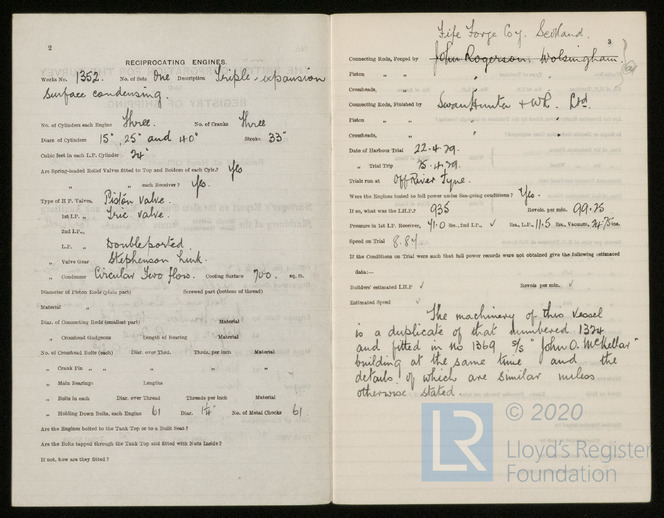 2
RECIPROCATING ENGINES.
Works No. 1352. No. of Sets One Description Triple-expansion
surface condensing.
No. of Cylinders each Engine Three. No. of Cranks Three
Diars. of Cylinders 15", 25" and 40" Stroke 33"
Cubic feet in each L.P. Cylinder 24
Are Spring-loaded Relief Valves fitted to Top and Bottom of each Cylr.? Yes
„ „ each Receiver? Yes.
Type of H.P. Valves, Piston valve.
„ 1st I.P. „ valve.
„ 2nd I.P. „
„ L.P. „ Double ported.
„ Valve Gear Stephenson link.
„ Condenser Circular Two flow. Cooling Surface 700. sq. ft.
Diameter of Piston Rods (plain part) Screwed part (bottom of thread)
Material „
Diar. of Connecting Rods (smallest part) Material
„ Crosshead Gudgeons Length of Bearing Material
No. of Crosshead Bolts (each) Diar. over Thrd. Thrds. per inch Material
„ Crank Pin „ „ „ „ „
„ Main Bearings Lengths
„ Bolts in each Diar. over Thread Threads per inch Material
„ Holding Down Bolts, each Engine 61 Diar. No. of Metal Chocks 61.
Are the Engines bolted to the Tank Top or to a Built Seat?
Are the Bolts tapped through the Tank Top and fitted with Nuts Inside?
If not, how are they fitted?
3
Fife Forge Coy. Scotland.
Connecting Rods, Forged by John Rogerson. Wolsingham.
Piston „ „ „
Crossheads, „ „
Connecting Rods, Finished by Swan Hunter & W.R. Ltd.
Piston „ „ „
Crossheads, „ „
Date of Harbour Trial 22.4.29.
„ Trial Trip 25.4.29.
Trials run at Off River Tyne.
Were the Engines tested to full power under Sea-going conditions? Yes.
If so, what was the I.H.P.? 935 Revols. per min. 99.25
Pressure in 1st I.P. Receiver, 41.0 lbs., 2nd I.P., ✓ lbs., L.P., 11.5 lbs., Vacuum, 24.75 ins.
Speed on Trial 8.84
If the Conditions on Trial were such that full power records were not obtained give the following estimated
data:—
Builders' estimated I.H.P. ✓ Revols. per min. ✓
Estimated Speed ✓
The machinery of this vessel
is a duplicate of that numbered 1324
and fitted in no 1369 S/S "John O. McKellar"
building at the same time and the
details of which are similar unless
otherwise stated.
© 2020
LR
Lloyd's Register
Foundation